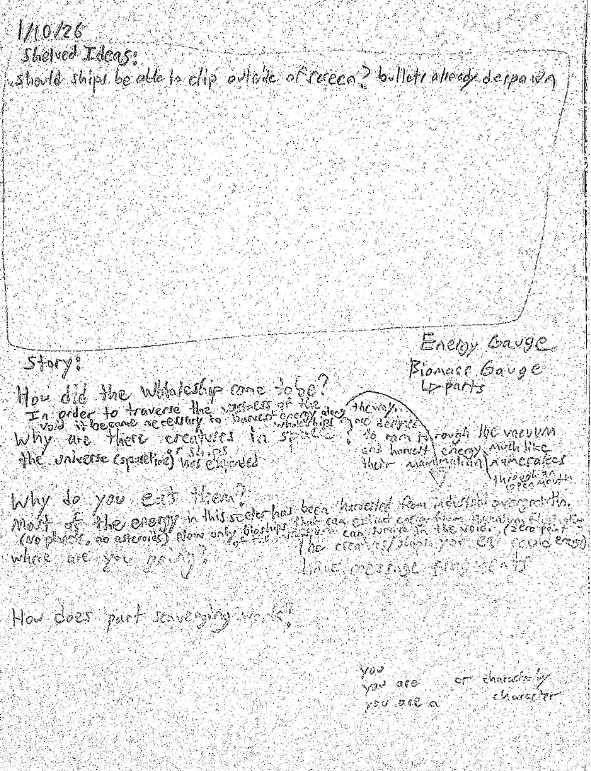 1/10/26
Shelved Ideas:
Should ships be able to clip outside of screen? bullets already despawn
Energy Gauge
Biomass Gauge
↳ parts
Story:
How did the Whaleship come to be?
In order to traverse the vastness of the
void it became necessary to harvest energy along the way.
Whaleships are designed
to ram through the vacuum
and harvest energy much like
their mammalian numerakes
through an
open mouth
Why are there creatures in space?
or ships
the universe (spacetime) has expanded
Why do you eat them?
Most of the energy in this sector has been harvested from industrial overgrowth.
(No planets, no asteroids) Now only bioships that can extract energy from
can survive in the void. (zero point energy)
Where are you going?
The creatures/ships you eat could
have message fragments
How does part scavenging work?
you
you are
you are a
or character by
character